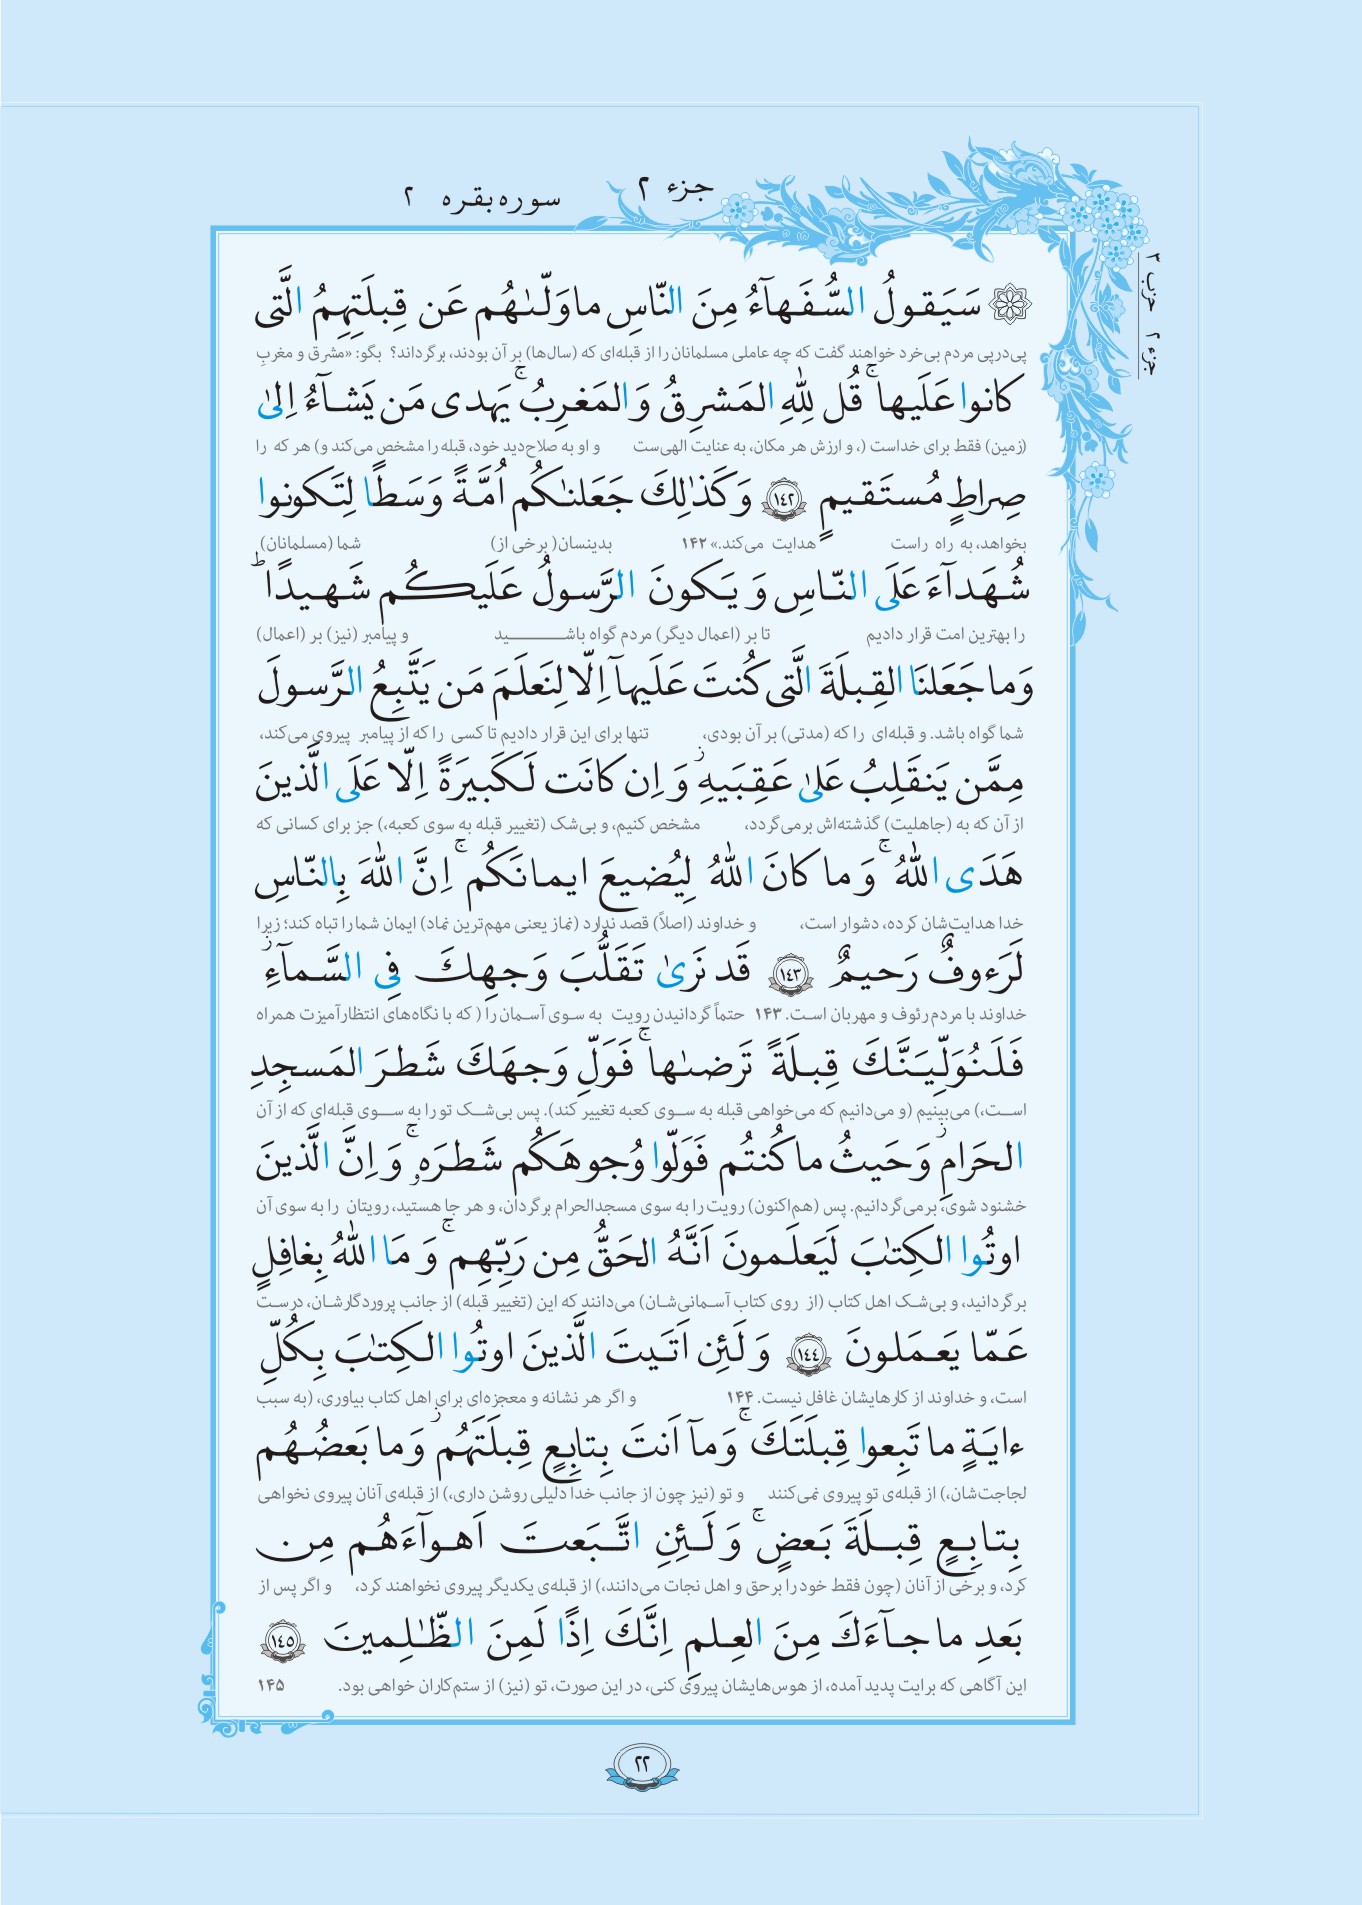 جزء ۲
سوره بقره ۲
جزء ۲ حزب ۳
سَيَقولُ السُّفَهآءُ مِنَ النّاسِ ماوَلّىٰهُم عَن قِبلَتِهِمُ الَّتى
پی‌درپی مردم بی‌خرد خواهند گفت که چه عاملی مسلمانان را از قبله‌ای که (سال‌ها) بر آن بودند، برگرداند؟ بگو: «مشرق و مغربِ
كانوا عَلَيها ۚ قُل لِلّٰهِ المَشرِقُ وَالمَغرِبُ ۚ يَهدى مَن يَشآءُ اِلىٰ
(زمین) فقط برای خداست (، و ارزش هر مکان، به عنایت الهی‌ست و او به صلاح‌دید خود، قبله را مشخص می‌کند و) هر که را
صِراطٍ مُستَقيمٍ ١٤٢ وَكَذٰلِكَ جَعَلنٰكُم اُمَّةً وَسَطًا لِتَكونوا
بخواهد، به راه راست هدایت می‌کند.» ۱۴۲ بدینسان( برخی از) شما (مسلمانان)
شُهَدآءَ عَلَى النّاسِ وَ يَكونَ الرَّسولُ عَلَيكُم شَهيدًا ؕ
را بهترین امت قرار دادیم تا بر (اعمال دیگر) مردم گواه باشـــــــید و پیامبر (نیز) بر (اعمال)
وَما جَعَلنَا القِبلَةَ الَّتى كُنتَ عَلَيهآ اِلّا لِنَعلَمَ مَن يَتَّبِعُ الرَّسولَ
شما گواه باشد. و قبله‌ای را که (مدتی) بر آن بودی، تنها برای این قرار دادیم تا کسی را که از پیامبر پیروی می‌کند،
مِمَّن يَنقَلِبُ عَلىٰ عَقِبَيهِ ز وَ اِن كانَت لَكَبيرَةً اِلّا عَلَى الَّذينَ
از آن که به (جاهلیت) گذشته‌اش برمی‌گردد، مشخص کنیم، و بی‌شک (تغییر قبله به سوی کعبه،) جز برای کسانی که
هَدَى اللّٰهُ ۚ وَ ما كانَ اللّٰهُ لِيُضيعَ ايمانَكُم ۚ اِنَّ اللّٰهَ بِالنّاسِ
خدا هدایت‌شان کرده، دشوار است، و خداوند (اصلاً) قصد ندارد (نماز یعنی مهم‌ترین نماد) ایمان شما را تباه کند؛ زیرا
لَرَءوفٌ رَحيمٌ ١٤٣ قَد نَرىٰ تَقَلُّبَ وَجهِكَ فِى السَّمآءِ ز
خداوند با مردم رئوف و مهربان است. ۱۴۳ حتماً گردانیدن رویت به سوی آسمان را ( که با نگاه‌های انتظارآمیزت همراه
فَلَنُوَلِّيَنَّكَ قِبلَةً تَرضىٰها ۚ فَوَلِّ وَجهَكَ شَطرَ المَسجِدِ
است،) می‌بینیم (و می‌دانیم که می‌خواهی قبله به سوی کعبه تغییر کند). پس بی‌شک تو را به سوی قبله‌ای که از آن
الحَرامِ ز وَحَيثُ ما كُنتُم فَوَلّوا وُجوهَكُم شَطرَهٖ ۚ وَ اِنَّ الَّذينَ
خشنود شوی، برمی‌گردانیم. پس (هم‌اکنون) رویت را به سوی مسجدالحرام برگردان، و هر جا هستید، رویتان را به سوی آن
اوتُوا الكِتٰبَ لَيَعلَمونَ اَنَّهُ الحَقُّ مِن رَبِّهِم ۚ وَ مَا اللّٰهُ بِغافِلٍ
برگردانید، و بی‌شک اهل کتاب (از روی کتاب آسمانی‌شان) می‌دانند که این (تغییر قبله) از جانب پروردگارشان، درست
عَمّا يَعمَلونَ ١٤٤ وَ لَئِن اَتَيتَ الَّذينَ اوتُوا الكِتٰبَ بِكُلِّ
است، و خداوند از کارهایشان غافل نیست. ۱۴۴ و اگر هر نشانه و معجزه‌ای برای اهل کتاب بیاوری، (به سبب
ءايَةٍ ما تَبِعوا قِبلَتَكَ ۚ وَمآ اَنتَ بِتابِعٍ قِبلَتَهُم ز وَما بَعضُهُم
لجاجت‌شان،) از قبله‌ی تو پیروی نمی‌کنند و تو (نیز چون از جانب خدا دلیلی روشن داری،) از قبله‌ی آنان پیروی نخواهی
بِتابِعٍ قِبلَةَ بَعضٍ ۚ وَ لَئِنِ اتَّبَعتَ اَهوآءَهُم مِن
کرد، و برخی از آنان (چون فقط خود را برحق و اهل نجات می‌دانند،) از قبله‌ی یکدیگر پیروی نخواهند کرد، و اگر پس از
بَعدِ ما جآءَكَ مِنَ العِلمِ اِنَّكَ اِذًا لَمِنَ الظّٰلِمينَ ١٤٥
این آگاهی که برایت پدید آمده، از هوس‌هایشان پیروی کنی، در این صورت، تو (نیز) از ستم‌کاران خواهی بود. ۱۴۵
۲۲